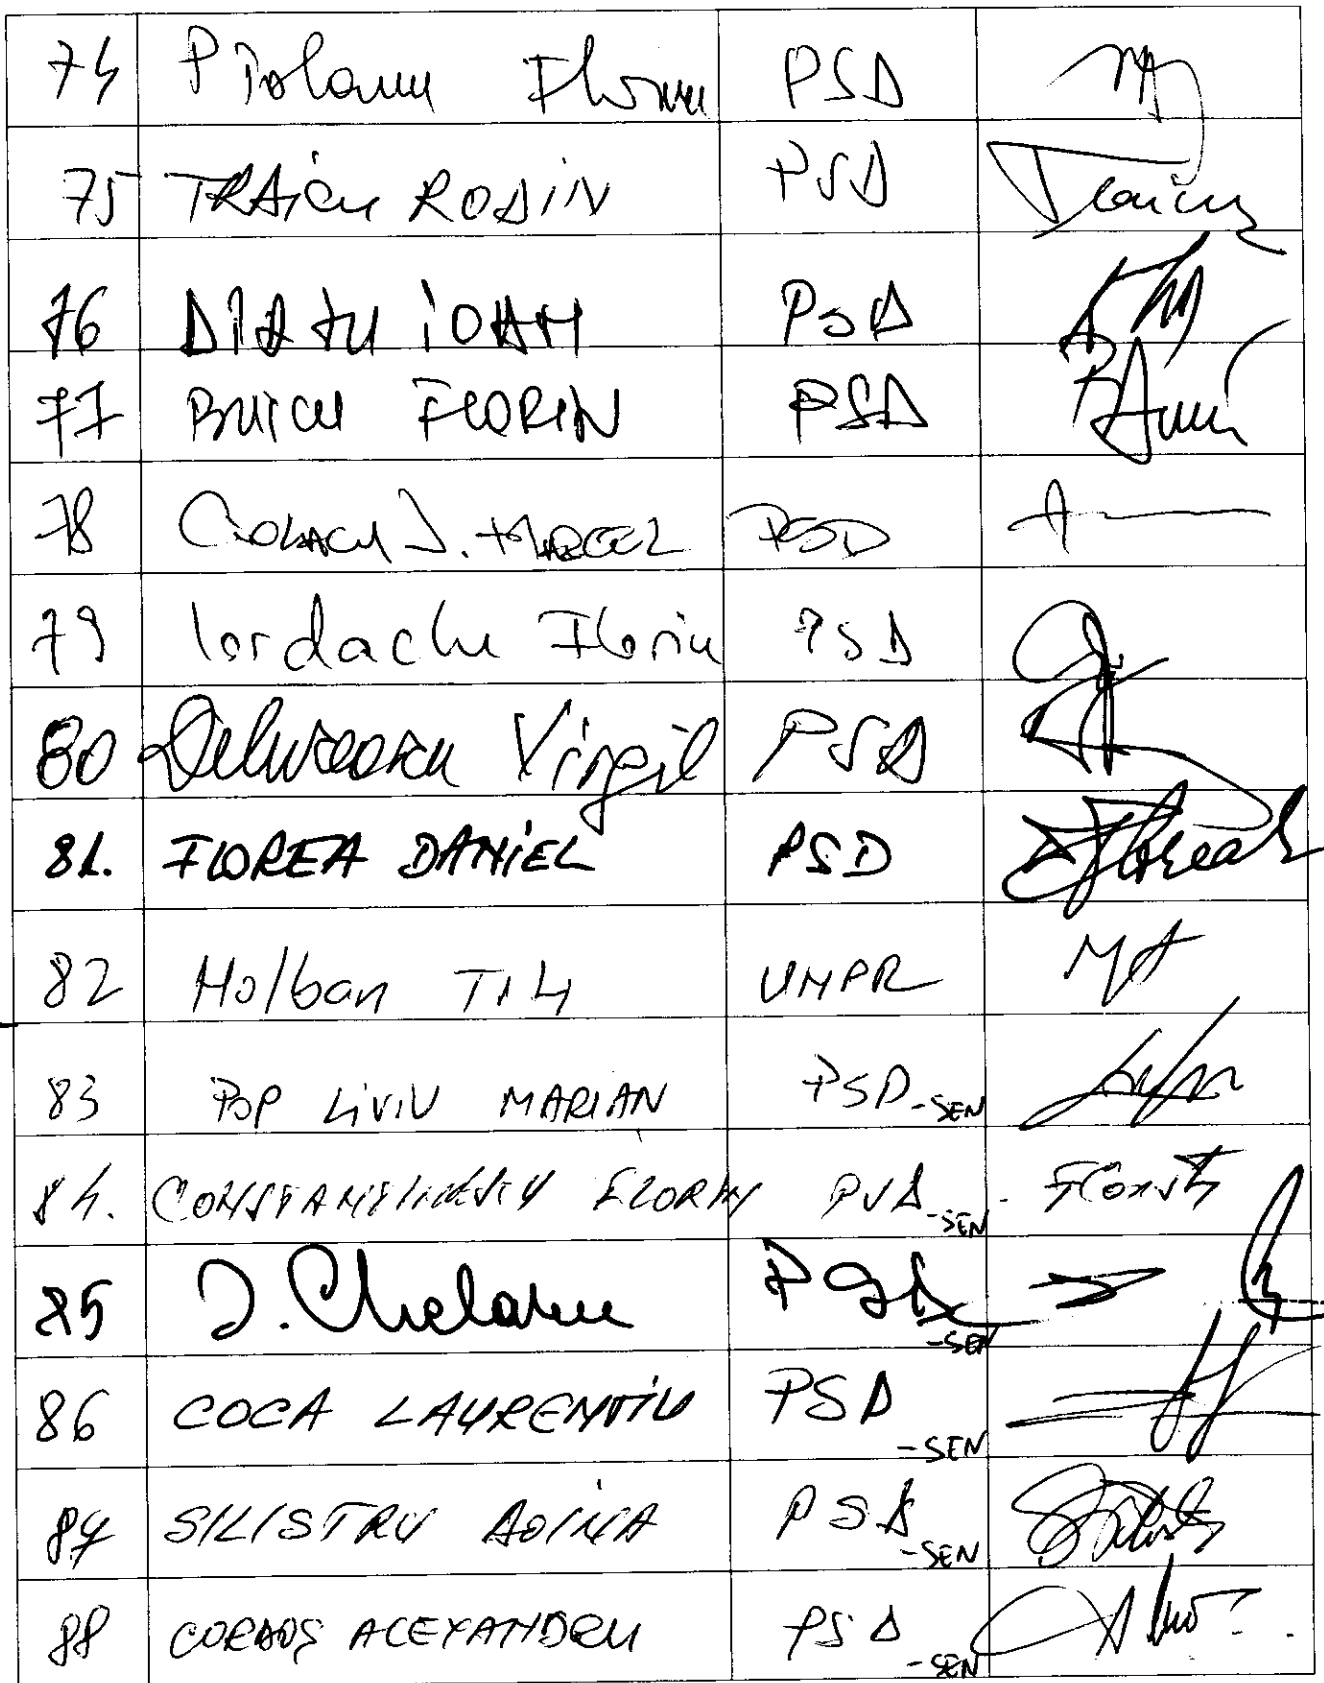 74 Florin PSD
75 TRAICU RODIN PSD Traicu
76 DIRZU IOAN PSD
77 BUICU FLORIN PSD
78 CIOLACU I. MARCEL PSD
79 Iordache Florin PSD
80 Delureanu Virgil PSD
81. FLOREA DANIEL PSD Florea
82 Holban Titi UNPR
83 POP LIVIU MARIAN PSD-SEN
84. CONSTANTINESCU FLORIN PSD-SEN
85 I. Chelaru PSD-SEN
86 COCA LAURENTIU PSD-SEN
87 SILISTRU DOINA PSD-SEN
88 CORDOȘ ALEXANDRU PSD-SEN